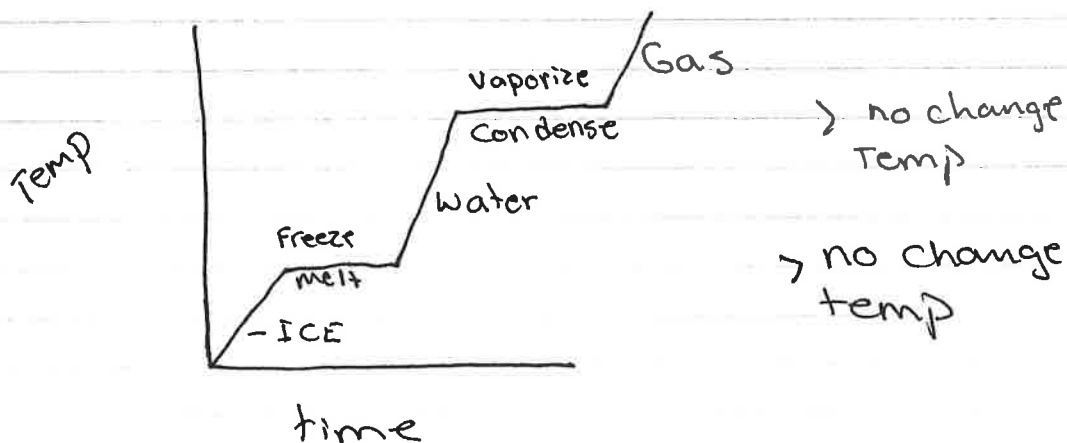 Gas
Vaporize
Condense
> no change
Temp
Temp
Water
Freeze
melt
> no change
temp
- ICE
time